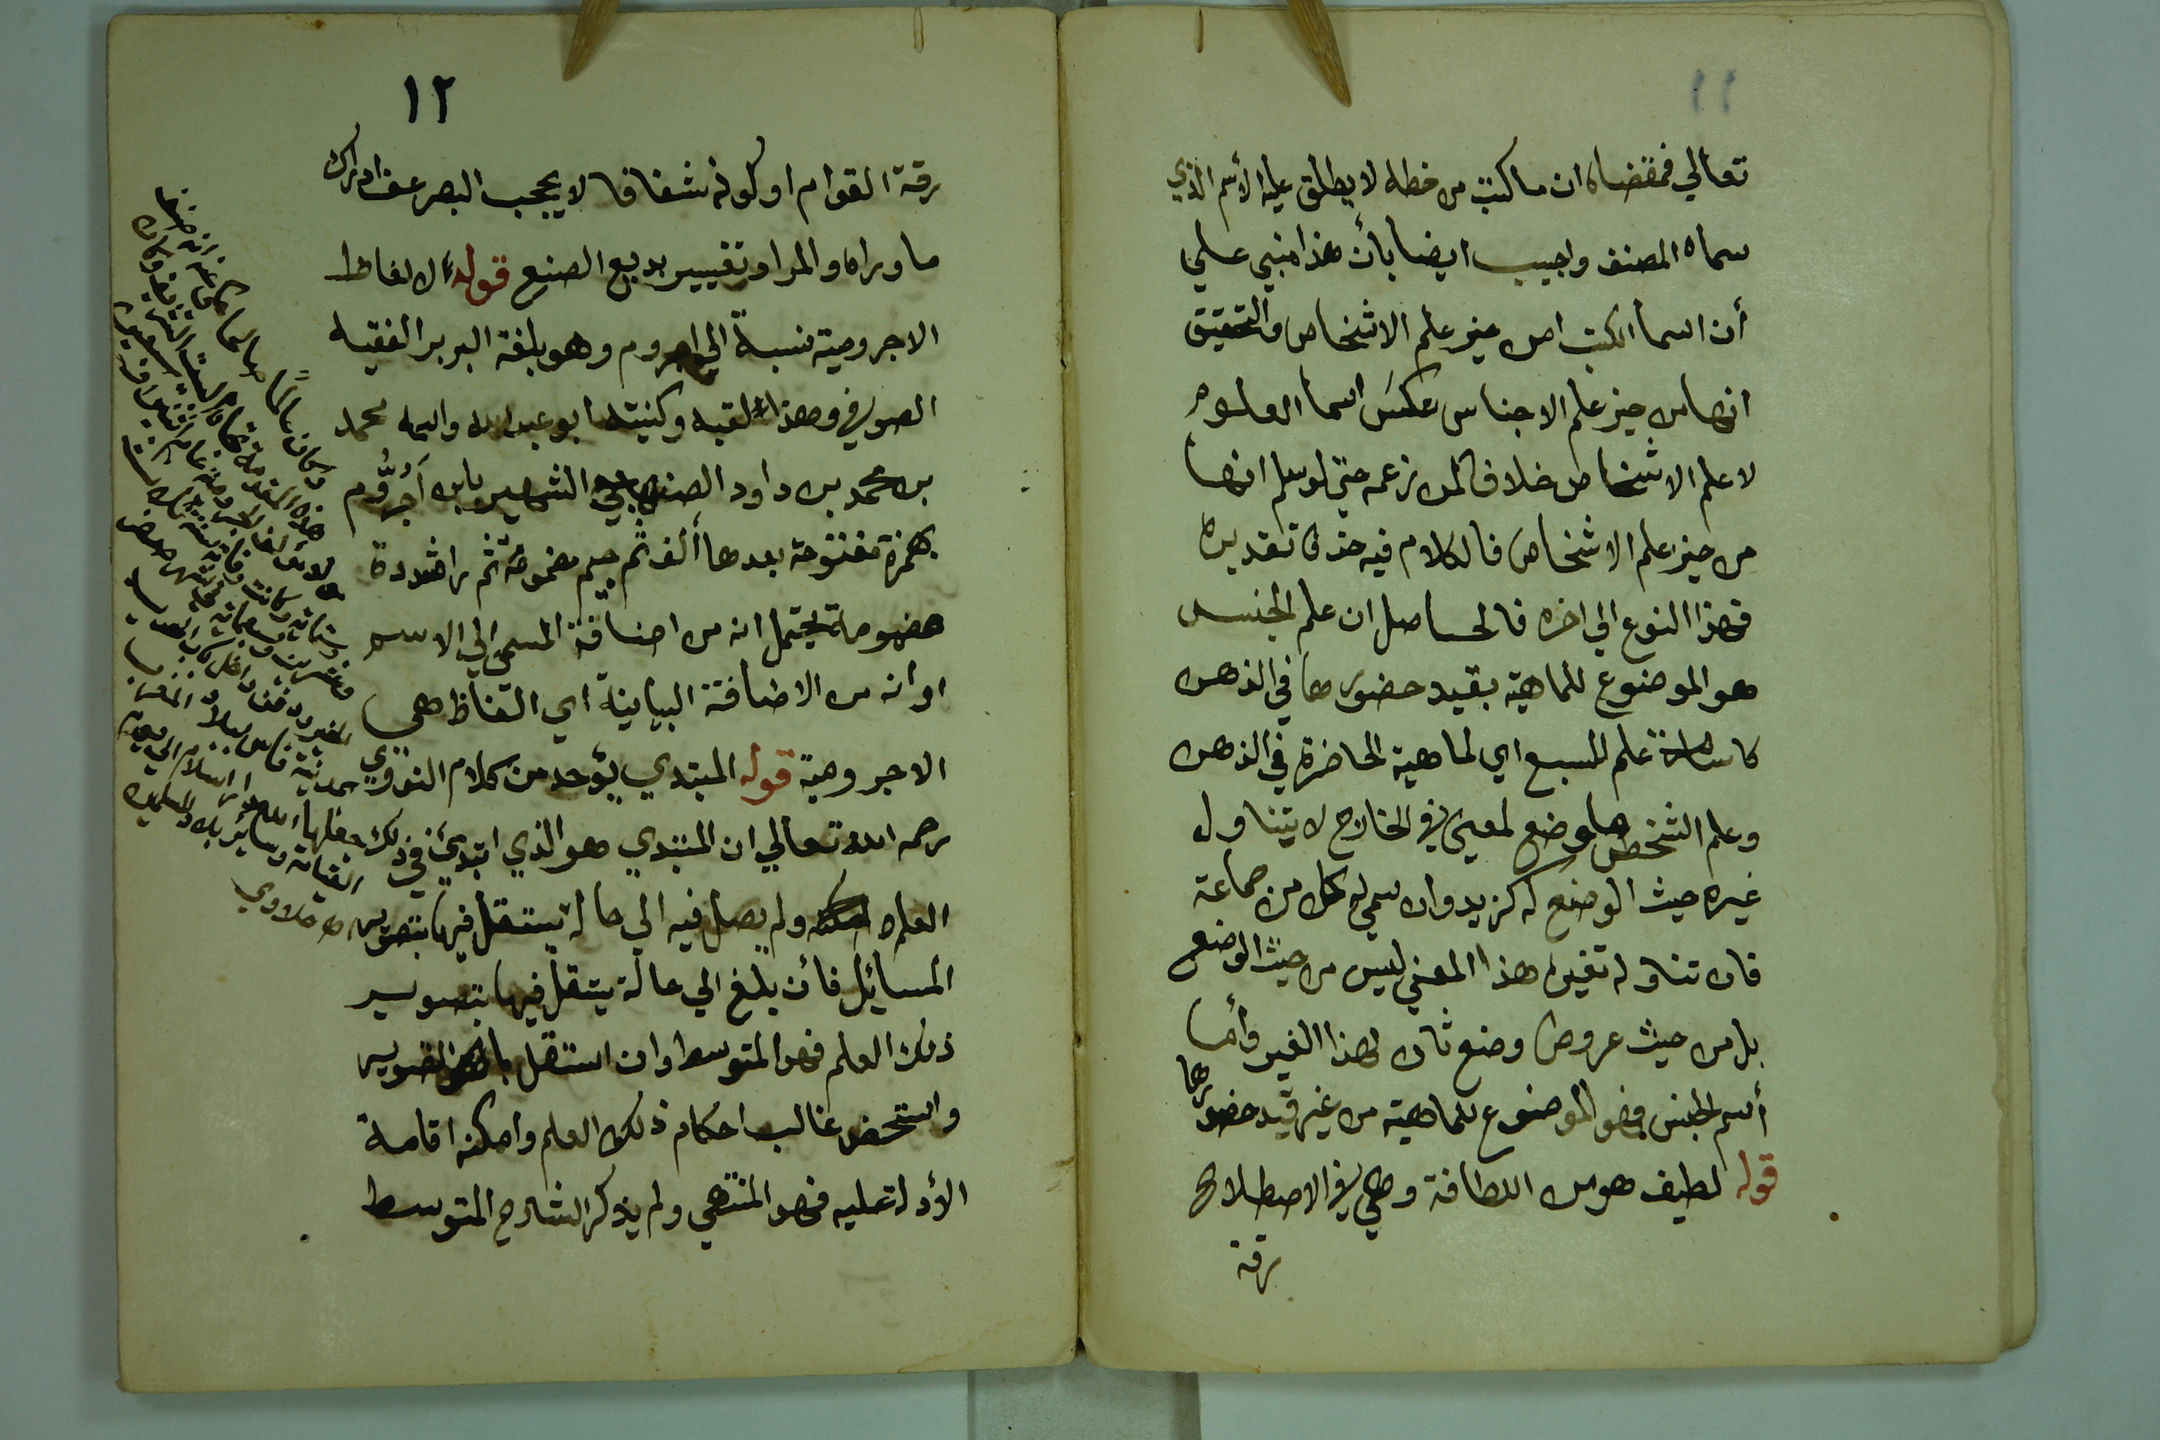 ١١
تعالي فمقتضاه ان ما كتب من خطه لا يطلق عليه الأسم الذي
سماه المصنف واجيب ايضا بأن هذا مبني علي
أن اسما الكتب من حيز علم الاشخاص والتحقيق
انها من حيز علم الاجناس عكس اسما العلوم
لا علم الاشخاص خلافا لمن زعمه حتي لو سلم انها
من حيز علم الاشخاص فالكلام فيه حذف تقديره
فهذا النوع الي اخره فالحاصل ان علم الجنس
هو الموضوع للماهية بقيد حضورها في الذهن
كاسامة علم للسبع اي لماهية الحاضرة في الذهن
وعلم الشخص هو ما وضع لمعين في الخارج لا يتناول
غيره حيث الوضع له كزيد وان سمي به كل من جماعة
فان تناوله تغير هذا المعني ليس من حيث الوضع
بل من حيث عروض وضع ثان لهذا الغير وأما
أسم الجنس فهو الموضوع للماهية من غير قيد حضورها
قوله لطيف هو من اللطافة وهي في الاصطلاح
رقة
١٢
رقة القوام او كونه شفافا لا يحجب البصر عن ادراك
ما وراه والمراد تفسير بديع الصنع قوله الالفاظ
الاجرومية نسبة الي اجروم وهو بلغة البربر الفقيه
الصوفي وهذا لقبه وكنيته ابو عبد الله واسمه محمد
بن محمد بن داود الصنهاجي الشهير بابن آجُرُّوم
بهمزة مفتوحة بعدها ألف ثم جيم مضمومة ثم را مشددة
مضمومة يحتمل انه من اضافة المسمي الي الاسم
او انه من الاضافة البيانية اي الفاظ هي
الاجرومية قوله المبتدي يؤخد من كلام النووي
رحمه الله تعالي ان المبتدي هو الذي ابتدئ في ذلك
العلم ولم يصل فيه الي حالة يستقل فيها بتصوير
المسائيل فأن بلغ الي حالة يستقل فيها بتصوير
ذلك العلم فهو المتوسط وان استقل بالتصوير
واستحضر غالب احكام ذلك العلم وامكنه اقامة
الأدلة عليه فهو المنتهي ولم يذكر الشارح المتوسط
وكان عالما صالحا
هذه المقدمة تجاه البيت الشريف
وعشرين وسبعماية
بمدينة فاس ببلاد المغرب
جعلها الله دار اسلام الي يوم
القيامة وسائر بلاد المسلمين